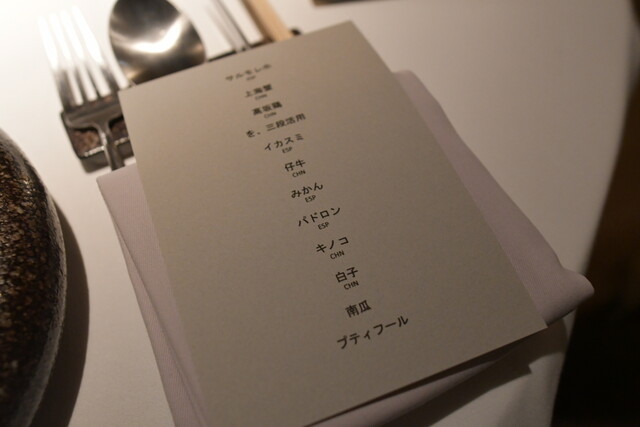 サルモレホ
ESP
上海蟹
CHN
高坂鶏
CHN
を、三段活用
イカスミ
ESP
仔牛
CHN
みかん
ESP
パドロン
ESP
キノコ
CHN
白子
CHN
南瓜
プティフール